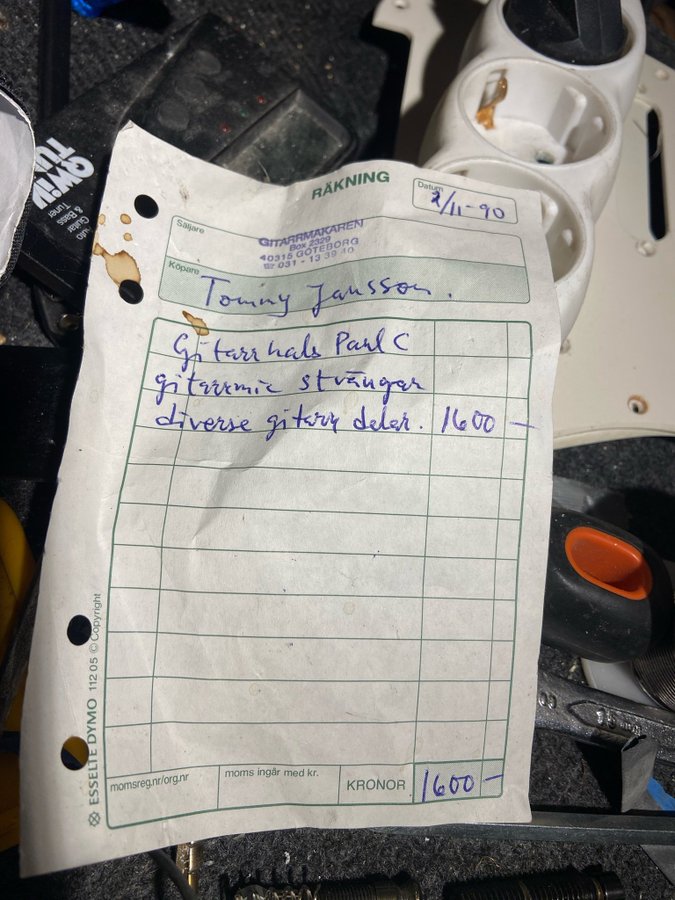 RÄKNING
Datum
2/11-90
Säljare
GITARRMAKAREN
Box 2329
40315 GÖTEBORG
Tfr 031 - 13 39 40
Köpare
Tommy Jansson.
Gitarrhals Paul C
gitarrmic strängar
diverse gitarr delar. 1600 —
momsreg.nr/org.nr
moms ingår med kr.
KRONOR
1600 —
ESSELTE DYMO 112 05 © Copyright
Qwik
TUNE
Guitar
& Bass
Tuner